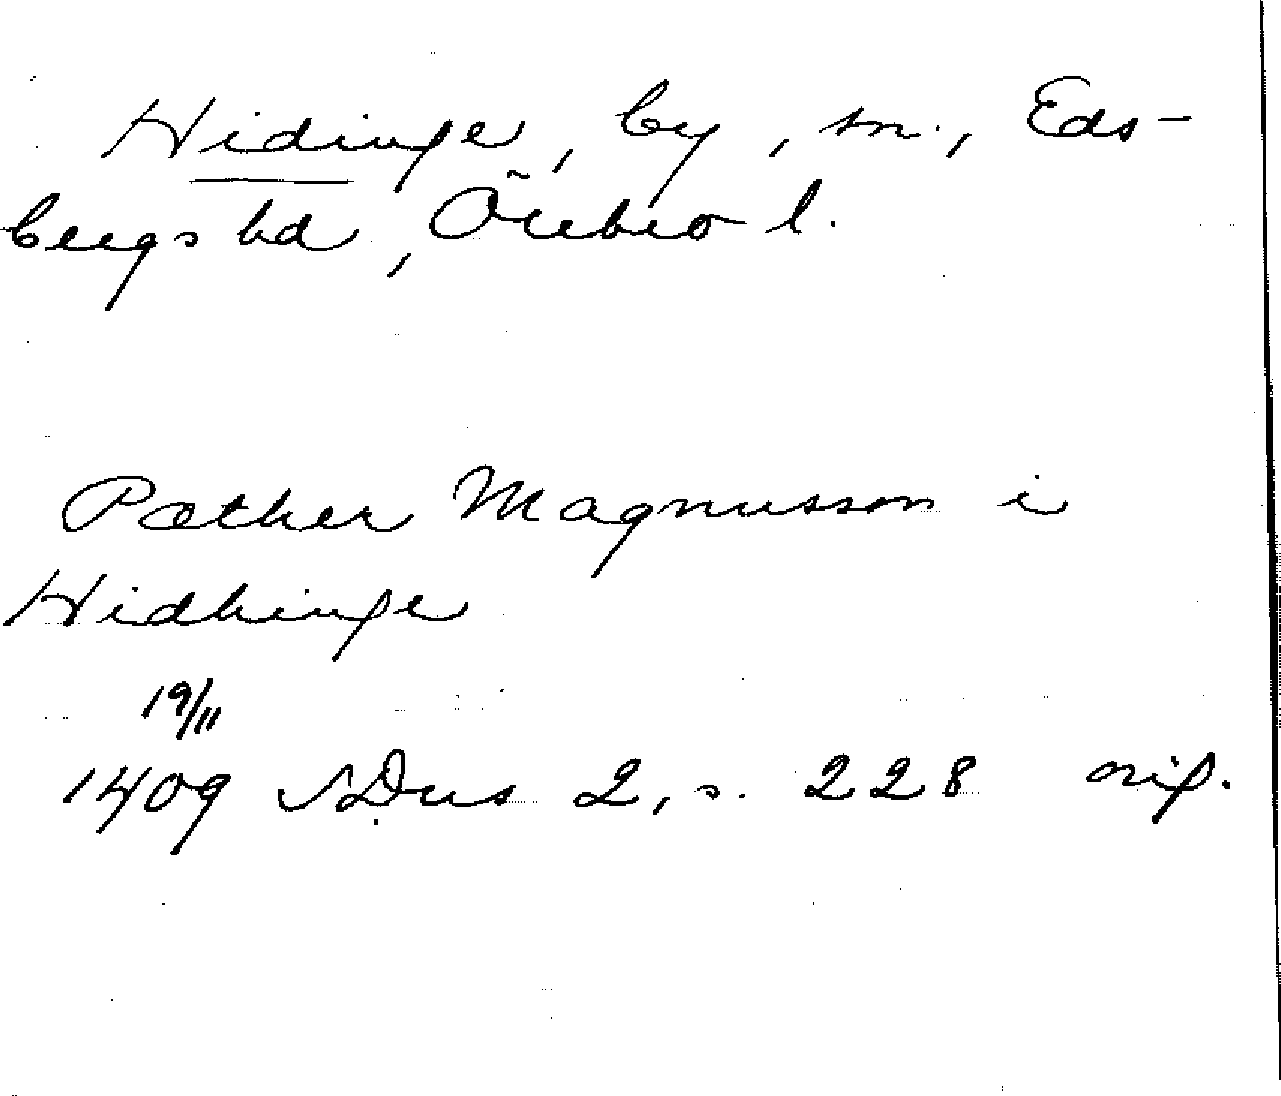 Hidinge, by, sn., Eds-
bergs hd, Örebro l.
Pæther Magnusson i
Hidhinge
19/11
1409 SDns 2, s. 228 orig.